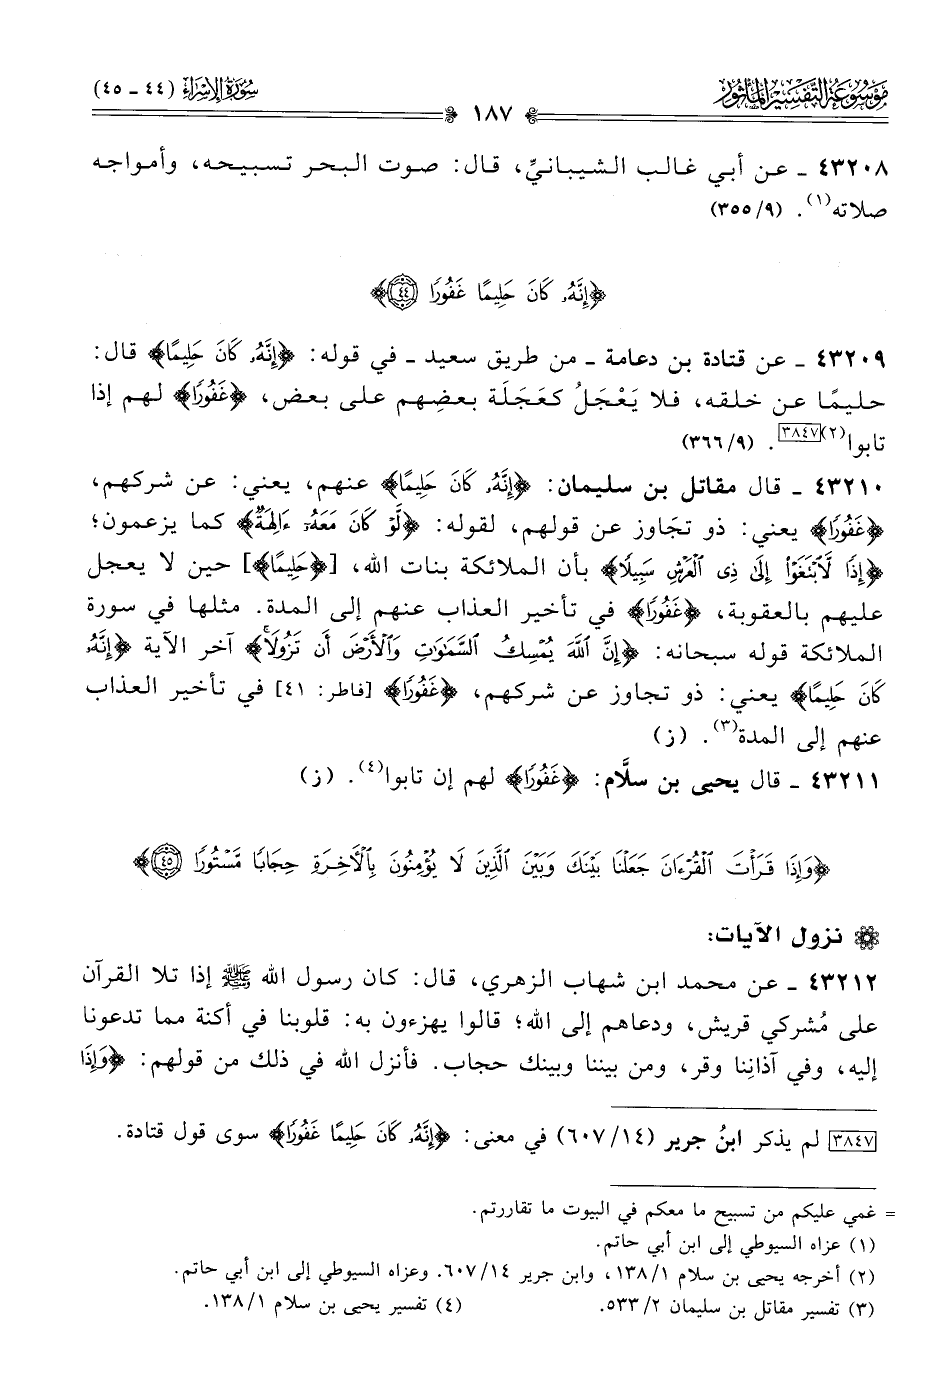 مَوْسُوعَةُ التَّفْسِيرِ المَأْثُورِ
سُورَةُ الإِسْرَاءِ (٤٤ - ٤٥)
١٨٧
٤٣٢٠٨ ـ عن أبي غالب الشيبانيِّ، قال: صوت البحر تسبيحه، وأمواجه
صلاته(١). (٣٥٥/٩)
﴿إِنَّهُۥ كَانَ حَلِيمًا غَفُورًا ٤٤﴾
٤٣٢٠٩ ـ عن قتادة بن دعامة ـ من طريق سعيد ـ في قوله: ﴿إِنَّهُۥ كَانَ حَلِيمًا﴾ قال:
حليمًا عن خلقه، فلا يَعْجَلُ كعَجَلَة بعضِهم على بعض، ﴿غَفُورًا﴾ لهم إذا
تابوا(٢)[٣٨٤٧]. (٣٦٦/٩)
٤٣٢١٠ ـ قال مقاتل بن سليمان: ﴿إِنَّهُۥ كَانَ حَلِيمًا﴾ عنهم، يعني: عن شركهم،
﴿غَفُورًا﴾ يعني: ذو تجَاوز عن قولهم، لقوله: ﴿لَّوْ كَانَ مَعَهُۥٓ ءَالِهَةٌ﴾ كما يزعمون؛
﴿إِذًا لَّٱبْتَغَوْا۟ إِلَىٰ ذِى ٱلْعَرْشِ سَبِيلًا﴾ بأن الملائكة بنات الله، [﴿حَلِيمًا﴾] حين لا يعجل
عليهم بالعقوبة، ﴿غَفُورًا﴾ في تأخير العذاب عنهم إلى المدة. مثلها في سورة
الملائكة قوله سبحانه: ﴿إِنَّ ٱللَّهَ يُمْسِكُ ٱلسَّمَٰوَٰتِ وَٱلْأَرْضَ أَن تَزُولَا﴾ آخر الآية ﴿إِنَّهُۥ
كَانَ حَلِيمًا﴾ يعني: ذو تجاوز عن شركهم، ﴿غَفُورًا﴾ [فاطر: ٤١] في تأخير العذاب
عنهم إلى المدة(٣). (ز)
٤٣٢١١ ـ قال يحيى بن سلَّام: ﴿غَفُورًا﴾ لهم إن تابوا(٤). (ز)
﴿وَإِذَا قَرَأْتَ ٱلْقُرْءَانَ جَعَلْنَا بَيْنَكَ وَبَيْنَ ٱلَّذِينَ لَا يُؤْمِنُونَ بِٱلْأَخِرَةِ حِجَابًا مَّسْتُورًا ٤٥﴾
نزول الآيات:
٤٣٢١٢ ـ عن محمد ابن شهاب الزهري، قال: كان رسول الله ﷺ إذا تلا القرآن
على مُشركي قريش، ودعاهم إلى الله؛ قالوا يهزءون به: قلوبنا في أكنة مما تدعونا
إليه، وفي آذانِنا وقر، ومن بيننا وبينك حجاب. فأنزل الله في ذلك من قولهم: ﴿وَإِذَا
[٣٨٤٧] لم يذكر ابنُ جرير (٦٠٧/١٤) في معنى: ﴿إِنَّهُۥ كَانَ حَلِيمًا غَفُورًا﴾ سوى قول قتادة.
= غمي عليكم من تسبيح ما معكم في البيوت ما تقاررتم.
(١) عزاه السيوطي إلى ابن أبي حاتم.
(٢) أخرجه يحيى بن سلام ١٣٨/١، وابن جرير ٦٠٧/١٤. وعزاه السيوطي إلى ابن أبي حاتم.
(٣) تفسير مقاتل بن سليمان ٥٣٣/٢. (٤) تفسير يحيى بن سلام ١٣٨/١.